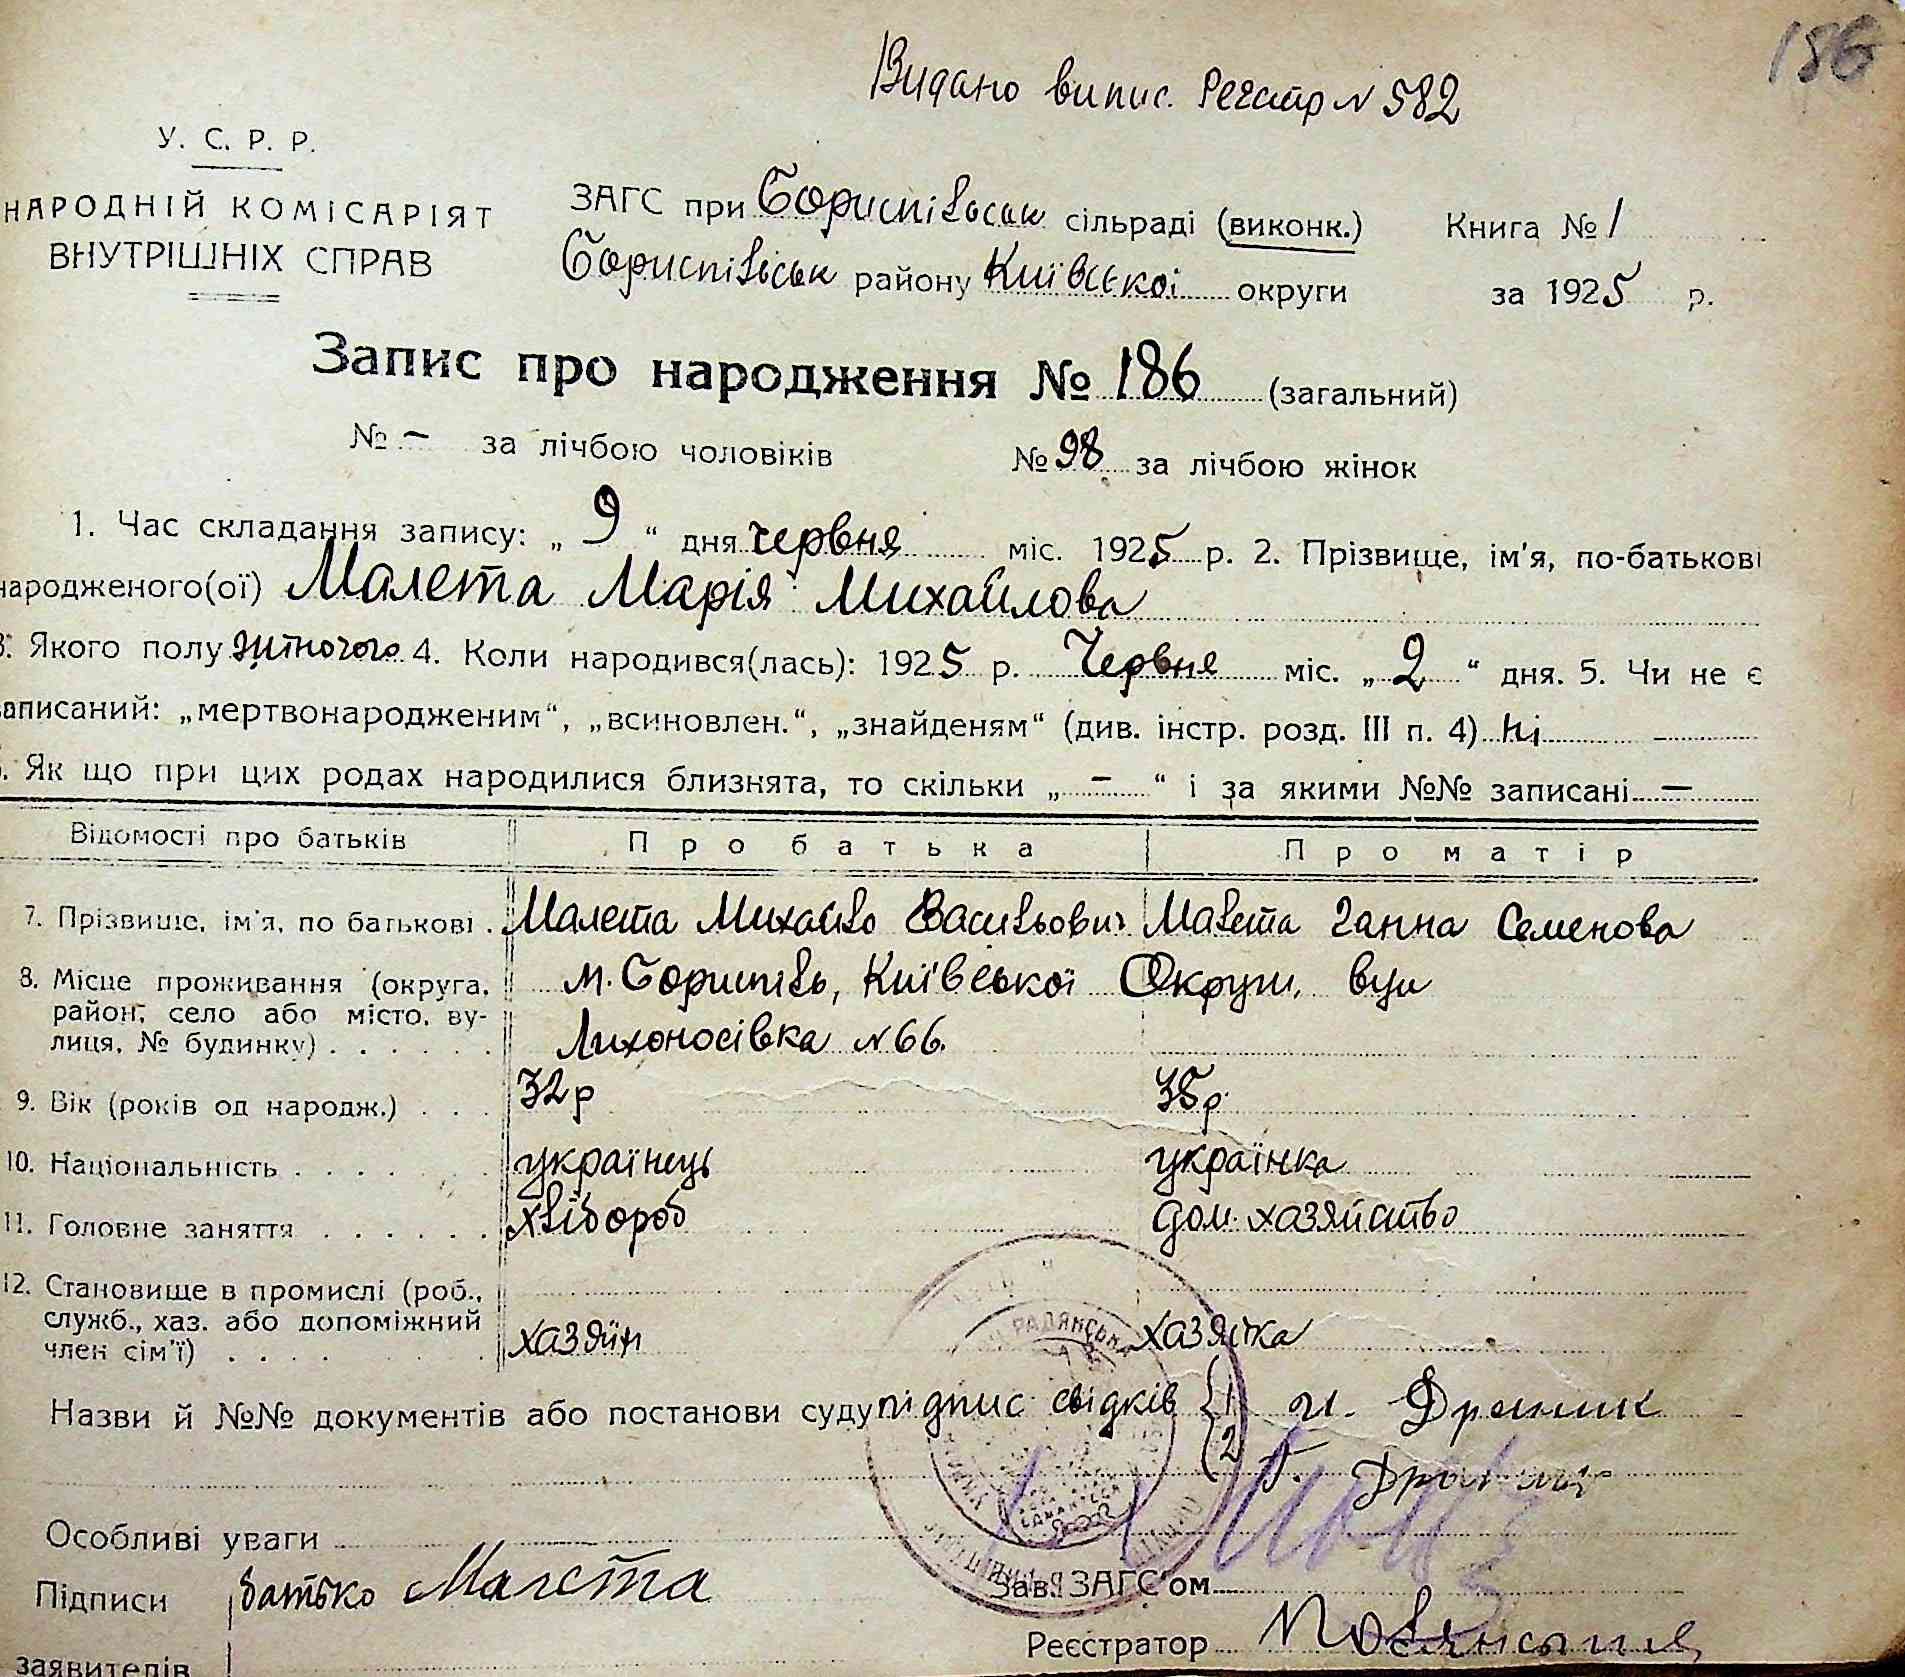 186
Видано випис. Реєстр № 582
У. С. Р. Р.
НАРОДНІЙ КОМІСАРІЯТ
ВНУТРІШНІХ СПРАВ
ЗАГС при Бориспільськ сільраді (виконк.) Книга № 1
Бориспільськ району Київської округи за 1925 р.
Запис про народження № 186 (загальний)
№ – за лічбою чоловіків № 98 за лічбою жінок
1. Час складання запису: „ 9 “ дня червня міс. 1925 р. 2. Прізвище, ім'я, по-батькові
народженого(ої) Малета Марія Михайлова
3. Якого полу жіночого 4. Коли народився(лась): 1925 р. Червня міс. „ 2 “ дня. 5. Чи не є
записаний: „мертвонародженим“, „всиновлен.“, „знайденям“ (див. інстр. розд. III п. 4) ні
6. Як що при цих родах народилися близнята, то скільки „ – “ і за якими №№ записані –
Відомості про батьків Про батька Про матір
7. Прізвище, ім'я, по батькові . Малета Михайло Васильович Малета Ганна Семенова
8. Місце проживання (округа, м. Бориспіль, Київської Округи, вул
район, село або місто, ву-
лиця, № будинку) . . . . . . Лихоносівка № 66.
9. Вік (років од народж.) . . . 32 р 35 р.
10. Національність . . . . . . українець українка
11. Головне заняття . . . . . . хлібороб дом. хазяйство
12. Становище в промислі (роб.,
служб., хаз. або допоміжний
член сім'ї) . . . . хазяїн хазяйка
Назви й №№ документів або постанови суду підпис свідків { 1
2
Особливі уваги
Підписи батько Малета
Зав. ЗАГС'ом
Реєстратор
заявителів